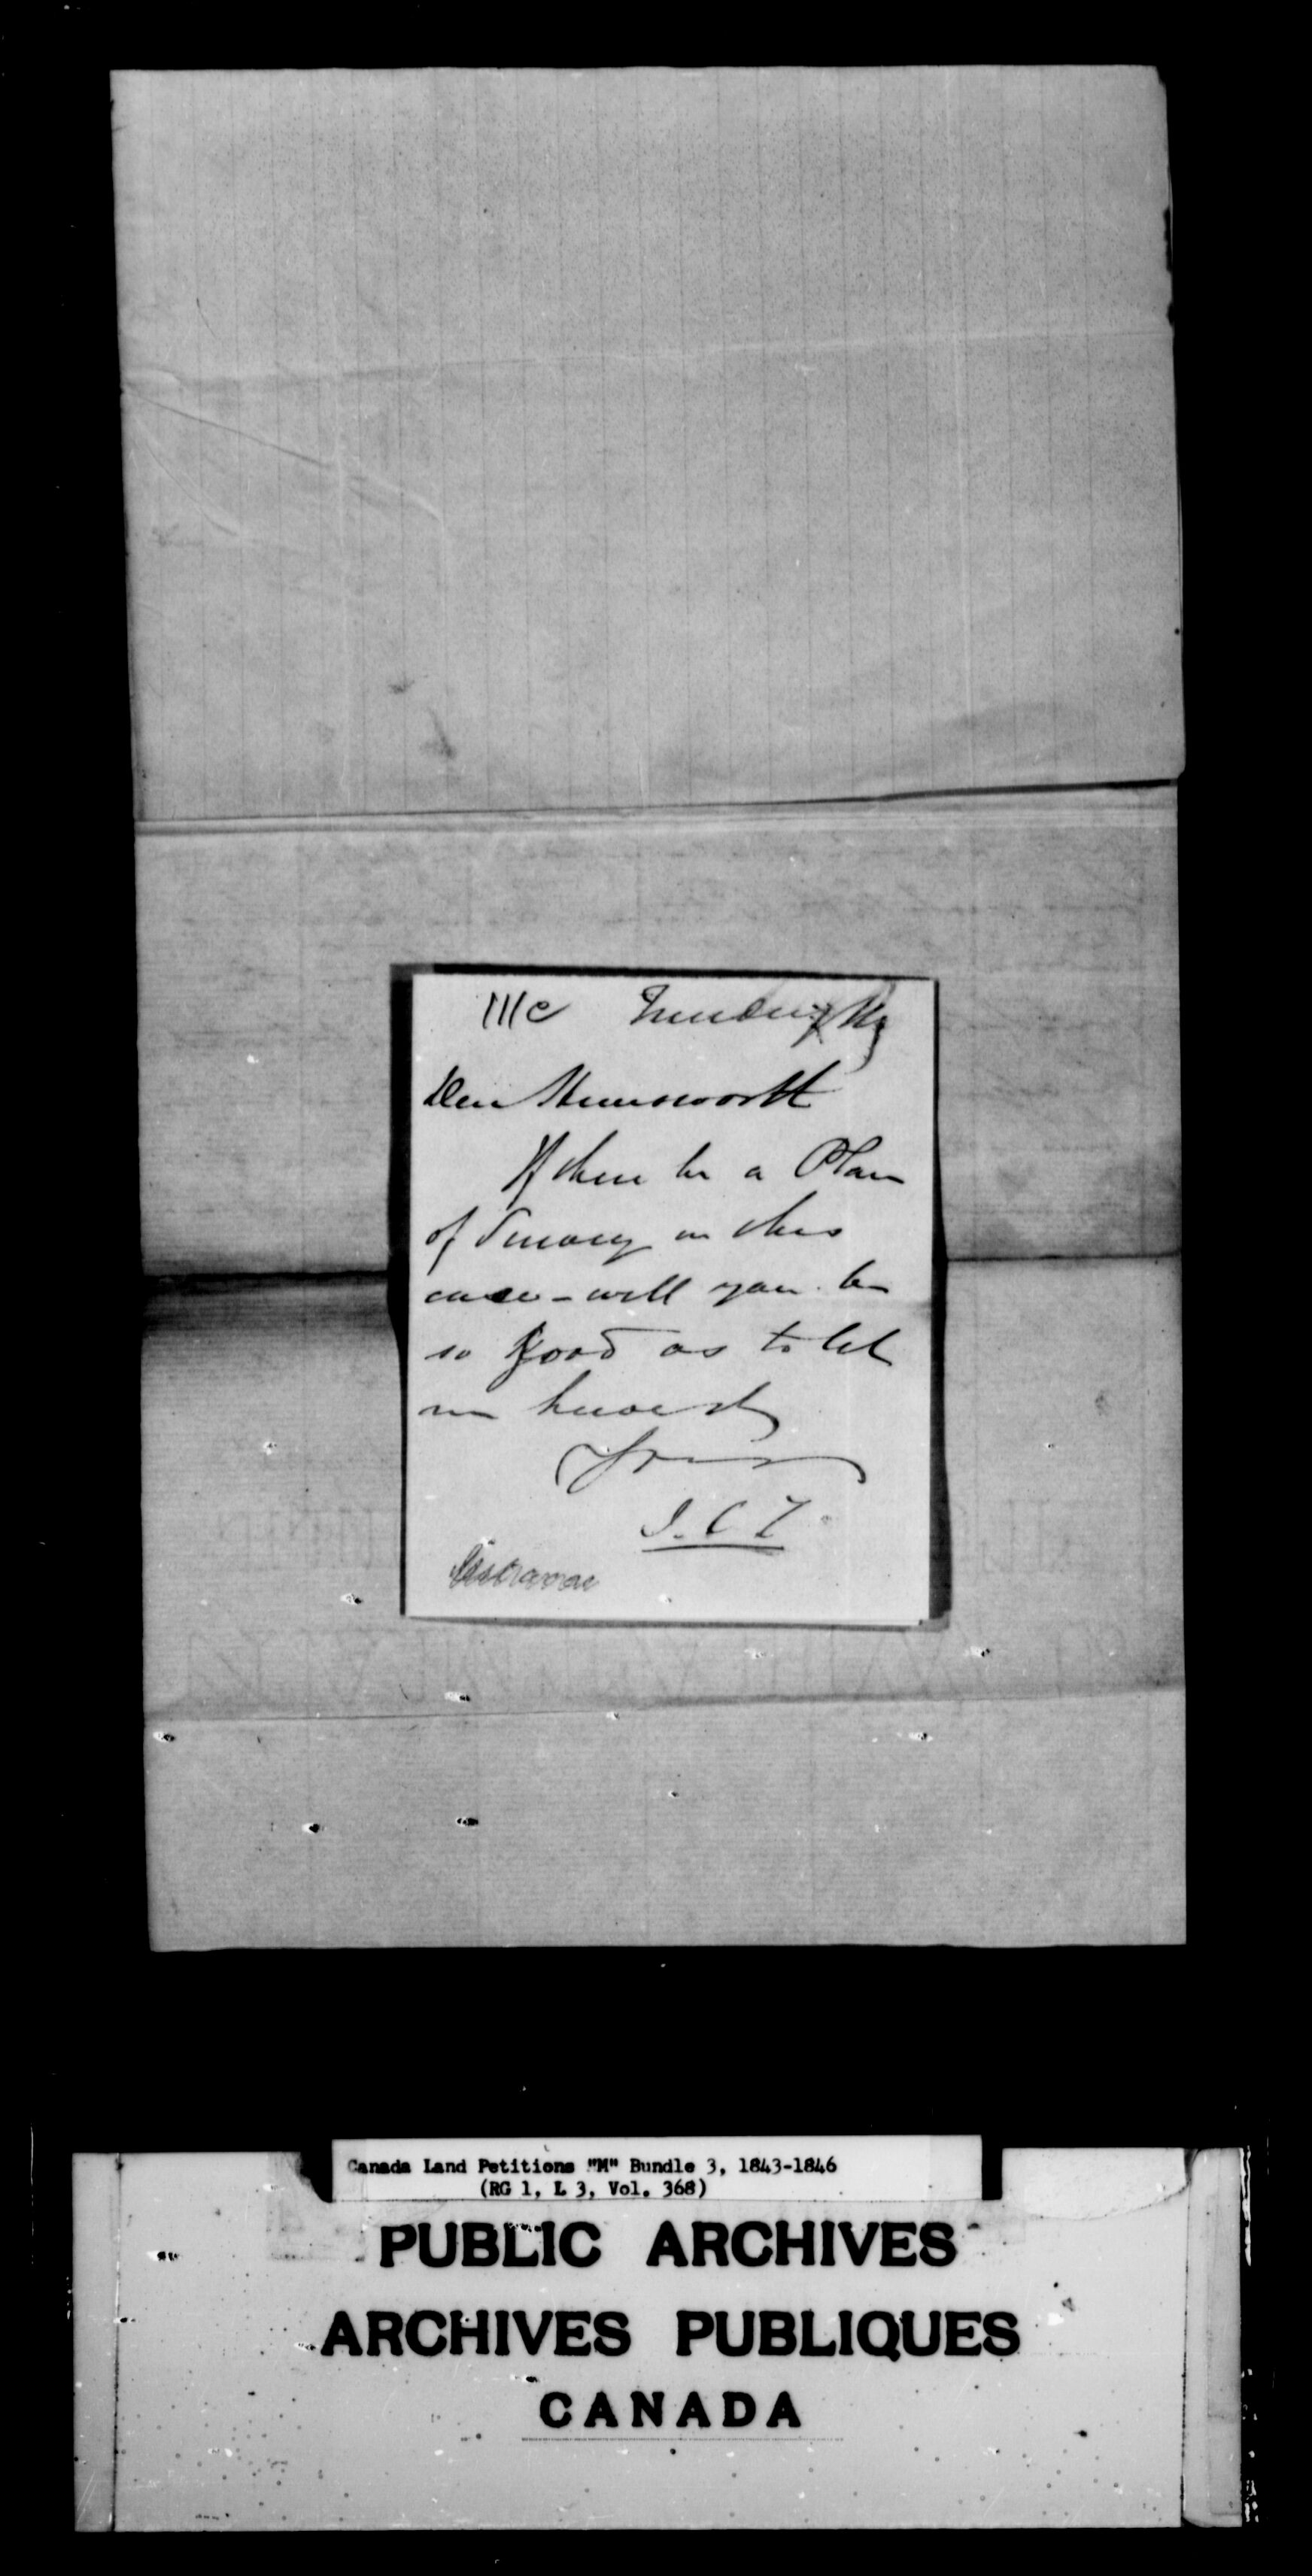 111c Tuesday
Dear Hemsworth
If there be a Plan
of Survey in this
case - will you be
so good as to let
me have it
Yours
Canada Land Petitions "M" Bundle 3, 1843-1846
(RG 1, L 3, Vol. 368)
PUBLIC ARCHIVES
ARCHIVES PUBLIQUES
CANADA